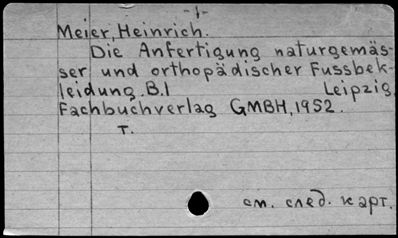 -1-
Meier, Heinrich.
Die Anfertigung naturgemäs-
ser und orthopädischer Fussbek-
leidung. B.I Leipzig,
Fachbuchverlag GMBH, 1952.
т.
см. след. карт.